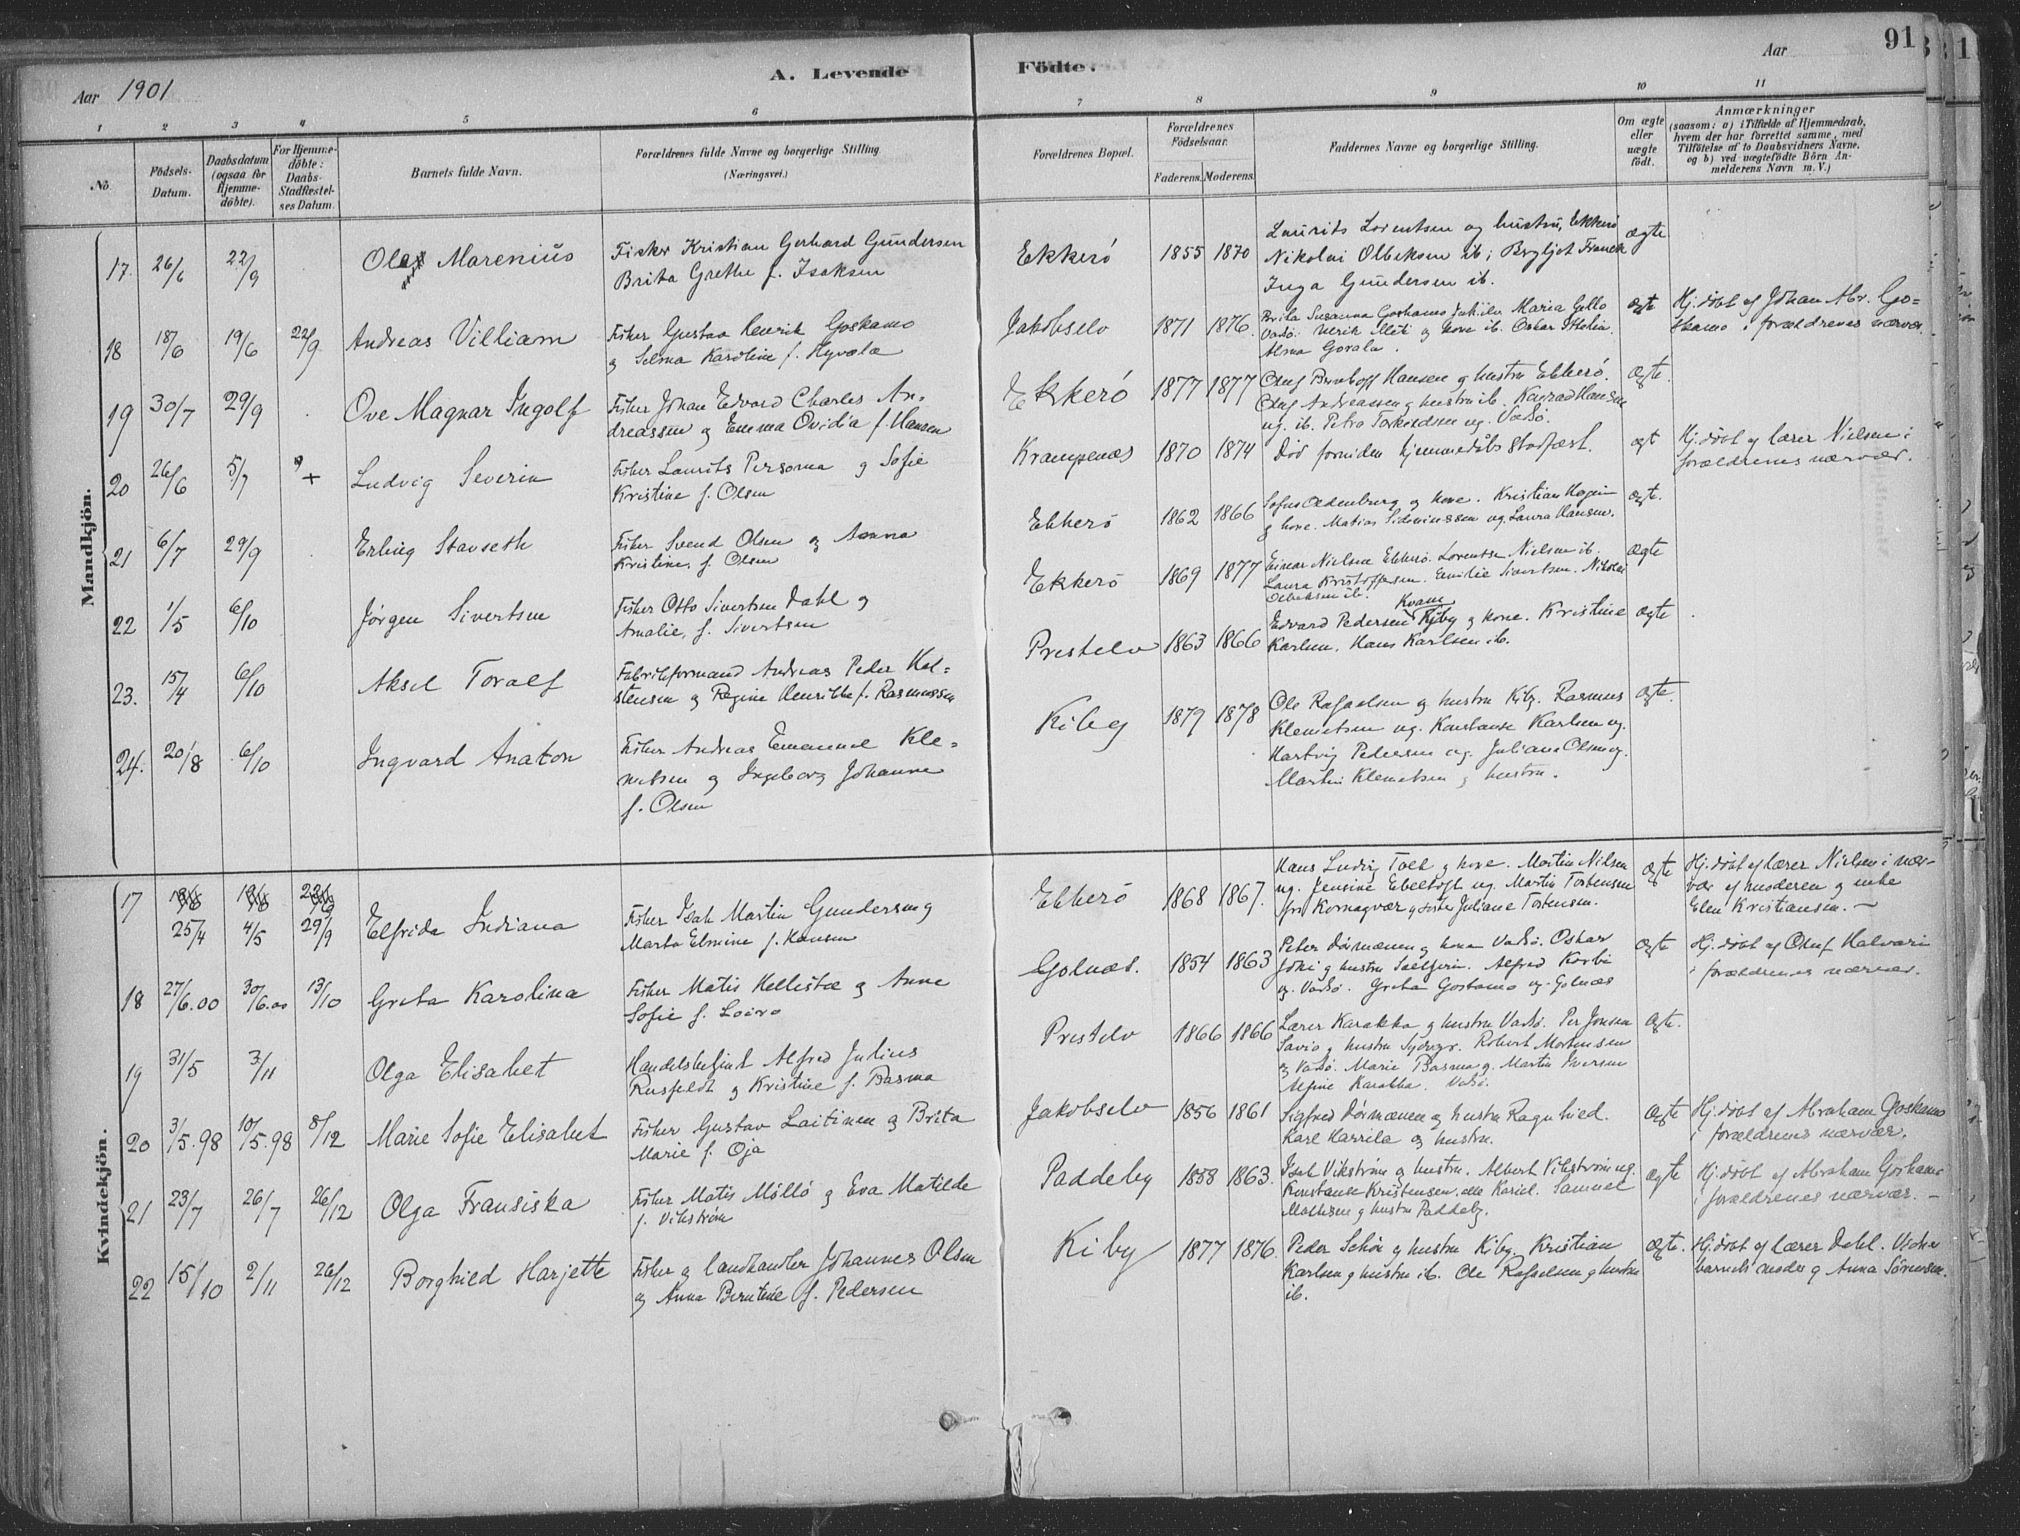 Aar 1901
A. Levende Födte.
Aar
91
1 2 3 4 5 6 7 8 9 10 11
No.
Födsels-Datum.
Daabsdatum (ogsaa for Hjemmedöbte).
For Hjemmedöbte: Daabs-Stadfæstelses Datum.
Barnets fulde Navn.
Forældrenes fulde Navne og borgerlige Stilling (Næringsvei.)
Forældrenes Bopæl.
Forældrenes Födselsaar.
Faderens. Moderens.
Faddernes Navne og borgerlige Stilling.
Om ægte eller uægte födt.
Anmærkninger
(saasom: a) i Tilfælde af Hjemmedaab, hvem der har forrettet samme, med Tilföielse af to Daabsvidners Navne, og b) ved uægtefödte Börn Anmelderens Navn m.V.)
Mandkjön.
17. 26/6 22/9 Marenius
Fisker Kristian Gerhard Gundersen
Brita Grethe f. Isaksen
Ekkerö 1855 1870
Laurits Lorentsen og hustru, Ekkerö
Nikolai Olbeksen ib; Bergljot Franck
Inga Gundersen ib.
ægte
18 18/6 19/6 22/9 Andreas Villiam
Fisker Gustav Henrik Goskamo
og Selma Karoline f. Hyvölä
Jakobselv 1871 1876.
Brita Susanna Goskamo Jakselv Maria Gello
Vadsö. og kone ib. Oskar
Alma Gorala.
ægte
Hj. döbt af Johan Abr. Go-
skamo i forældrenes nærvær.
19 30/7 29/9 Ove Magnar Ingolf
Fisker Johan Edvard Charles An-
dreassen og Emma Ovidia f. Hansen
Ekkerö 1877 1877
Oluf Bernhoff Hansen og hustru Ekkerö.
Oluf Andreassen og hustru ib. Konrad Hansen
ug. ib. Petra Torkildsen ug. Vadsö.
ægte.
20 26/6 5/7 + Ludvig Severin
Fisker Laurits Persoma og Sofie
Kristine f. Olsen
Krampenæs 1870 1874
Död forinden hjemmedåbs stadfæst.
ægt
Hj. döbt af lærer Nielsen i
forældrenes nærvær.
21 6/7 29/9 Erling Stavseth
Fisker Svend Olsen og Anna
Kristine, f. Olsen
Ekkerö 1862 1866
Sofus Oldenburg og kone. Kristian Hagen
og kone. Matias Sidoniussen ug. Laura Hansen.
ægte.
22 1/5 6/10 Jørgen Sivertsen
Fisker Otto Sivertsen Dahl og
Amalie, f. Sivertsen
Ekkerö 1869 1877
Einar Nielsen Ekkerö. Lorentse Nielsen ib.
Laura Kristoffersen. Emilie Sivertsen. Nikolai
Olbeksen ib.
ægte
23. 15/4 6/10 Aksel Toralf
Fabrikformand Andreas Peder Kar-
stensen og Regine Henrikke f. Rasmussen
Prestelv 1863 1866
Kvam
Edvard Pedersen Kiby og kone. Kristine
Karlsen. Hans Karlsen ib.
ægte
24. 20/8 6/10 Ingvard Anaton
Fisker Andreas Emanuel Kle-
metsen og Ingeborg Johanne
f. Olsen
Kiby 1879 1878
Ole Rafaelsen og hustru Kiby. Rasmus
Klemetsen ug. Konstanse Karlsen ug.
Hartvig Pedersen ug. Juliane Olsen ug.
Martin Klemetsen og hustru.
ægte.
Kvindekjön.
17 25/4 4/5 29/9 Elfrida Indiana
Fisker Isak Martin Gundersen og
Marta Elmine f. Hansen
Ekkerö 1868 1867.
Hans Ludvig Toll og kone. Martin Nilsen
ug. Jensine Ebeltoft ug. Martin Torstensen
fra Komagvær og søster Juliane Torstensen.
ægte
Hj. döbt af lærer Nielsen i nær-
vær af moderen og enke
Elen Kristiansen. —
18 27/6.00 30/6.00 13/10 Greta Karolina
Fisker Matis Hellistæ og Anne
Sofie f. Loivo
Golnæs. 1854 1863
Peter Dörmænen og kone Vadsö. Oskar
Joki og hustru. Alfred Korbi
ug. Vadsö. Greta Goskamo ug. Golnæs
ægte
Hj. döbt af Oluf Halvari
i forældrenes nærvær.
19 31/5 3/11 Olga Elisabet
Handelsbetjent Alfred Julius
Rusfeldt og Kristine f. Basma
Prestelv 1866 1866
Lærer Karakka og hustru Vadsö. Per Jonsen
Savio og hustru Sydvgr. Robert Mortensen
ug Vadsö. Marie Basma ug. Martin Iversen
Alfine Karakka. Vadsö.
ægte.
20 3/5.98 10/5.98 8/12 Marie Sofie Elisabet
Fisker Gustav Laitinen og Brita
Marie f. Oja
Jakobselv 1856 1861
Sigfred Dörmænen og hustru Ragnhild.
Karl Karrila og hustru.
ægte
Hj. döbt af Abraham Goskamo
i forældrenes nærvær.
21 23/7 26/7 26/12 Olga Fransiska
Fisker Matis Möllö og Eva Matilde
f. Vikström
Paddeby 1858 1863.
Isak Vikström og hustru. Albert Vikström ug.
Konstanse Kristensen. Samuel
Mathisen og hustru Paddeby.
ægte
Hj. döbt af Abraham Goskamo
i forældrenes nærvær. —
22 15/10 2/11 26/12 Borghild Harjette
Fisker og landhandler Johannes Olsen
og Anna Berntine f. Pedersen
Kiby 1877 1876.
Peder Schön og hustru Kiby. Kristian
Karlsen og hustru ib. Ole Rafaelsen og hustru
ib.
ægte.
Hj. döbt af lærer Dahl. Vidner
barnets moder og Anna Sörensen.